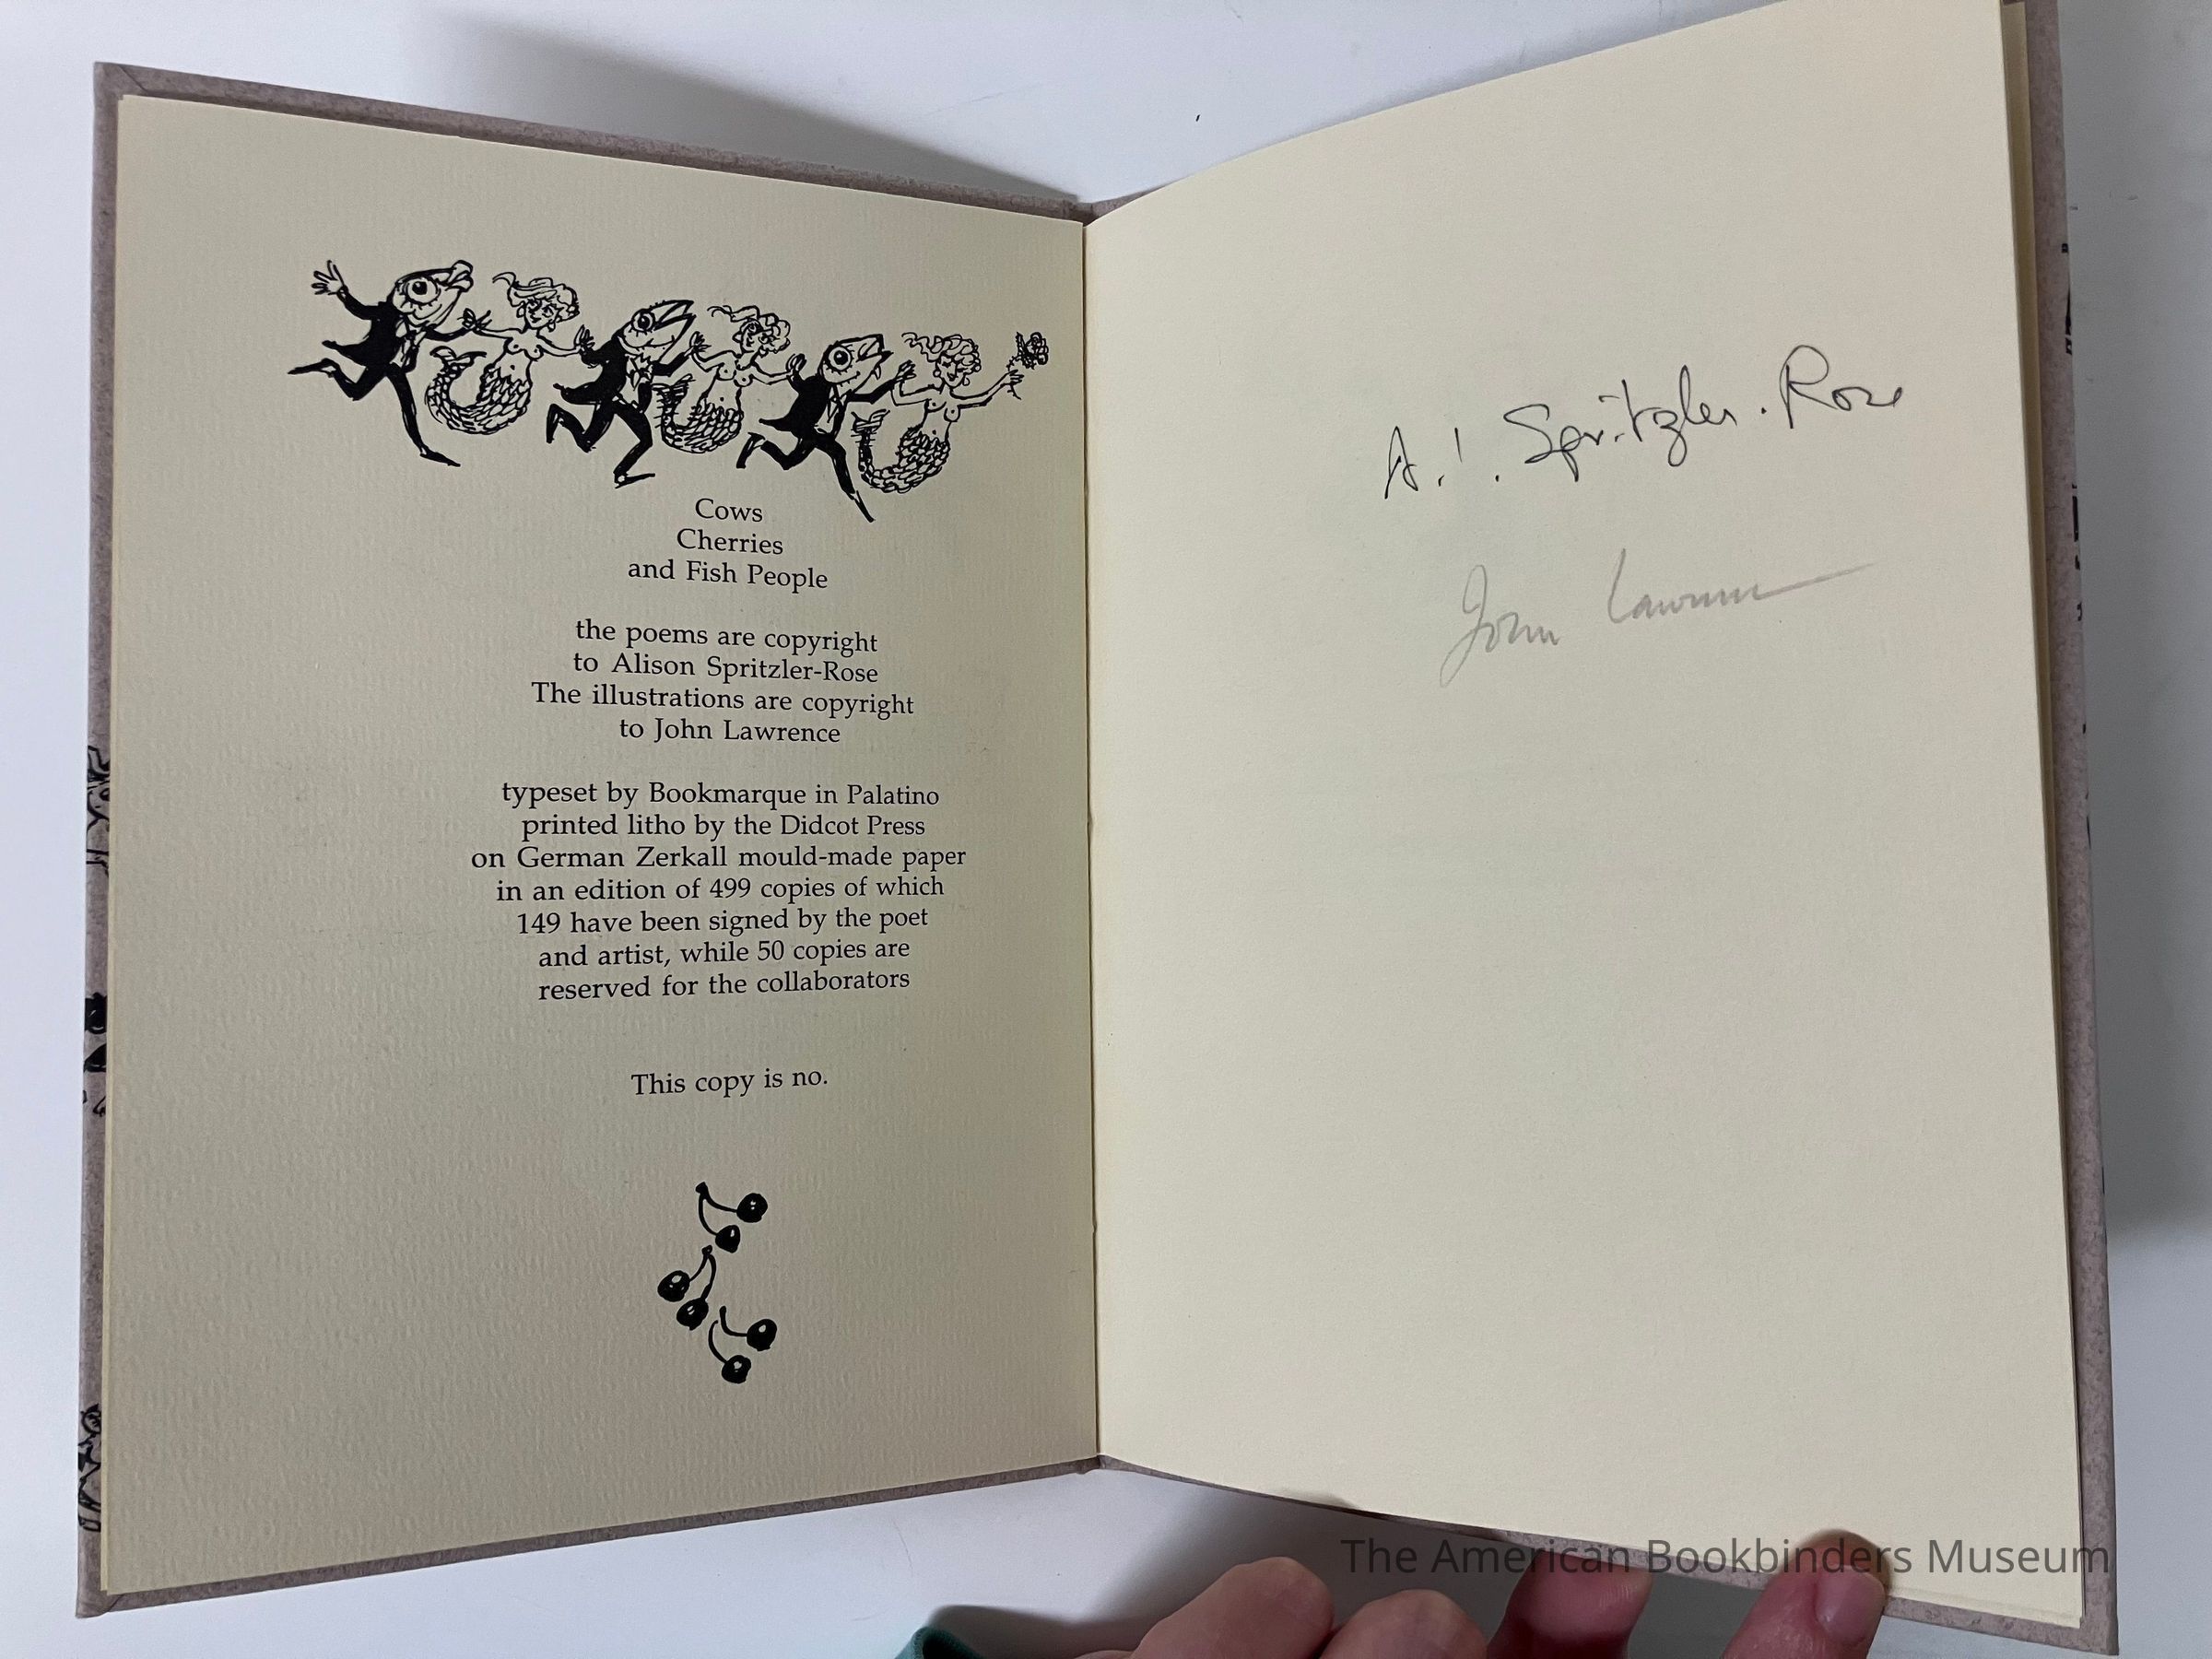 Cows
Cherries
and Fish People
the poems are copyright
to Alison Spritzler-Rose
The illustrations are copyright
to John Lawrence
typeset by Bookmarque in Palatino
printed litho by the Didcot Press
on German Zerkall mould-made paper
in an edition of 499 copies of which
149 have been signed by the poet
and artist, while 50 copies are
reserved for the collaborators
This copy is no.
A. I. Spritzler-Rose
John Lawrence
The American Bookbinders Museum